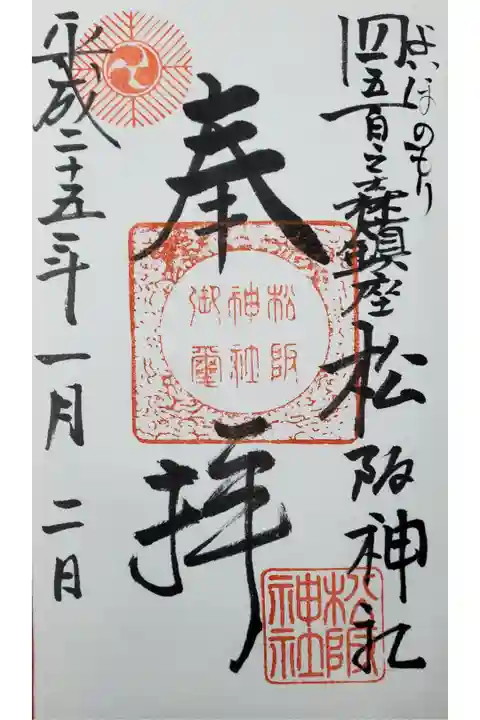 よいほのもり
四五百之森鎮座 松阪神社
奉拝
平成二十五年一月二日
松阪
神社
御璽
松阪
神社